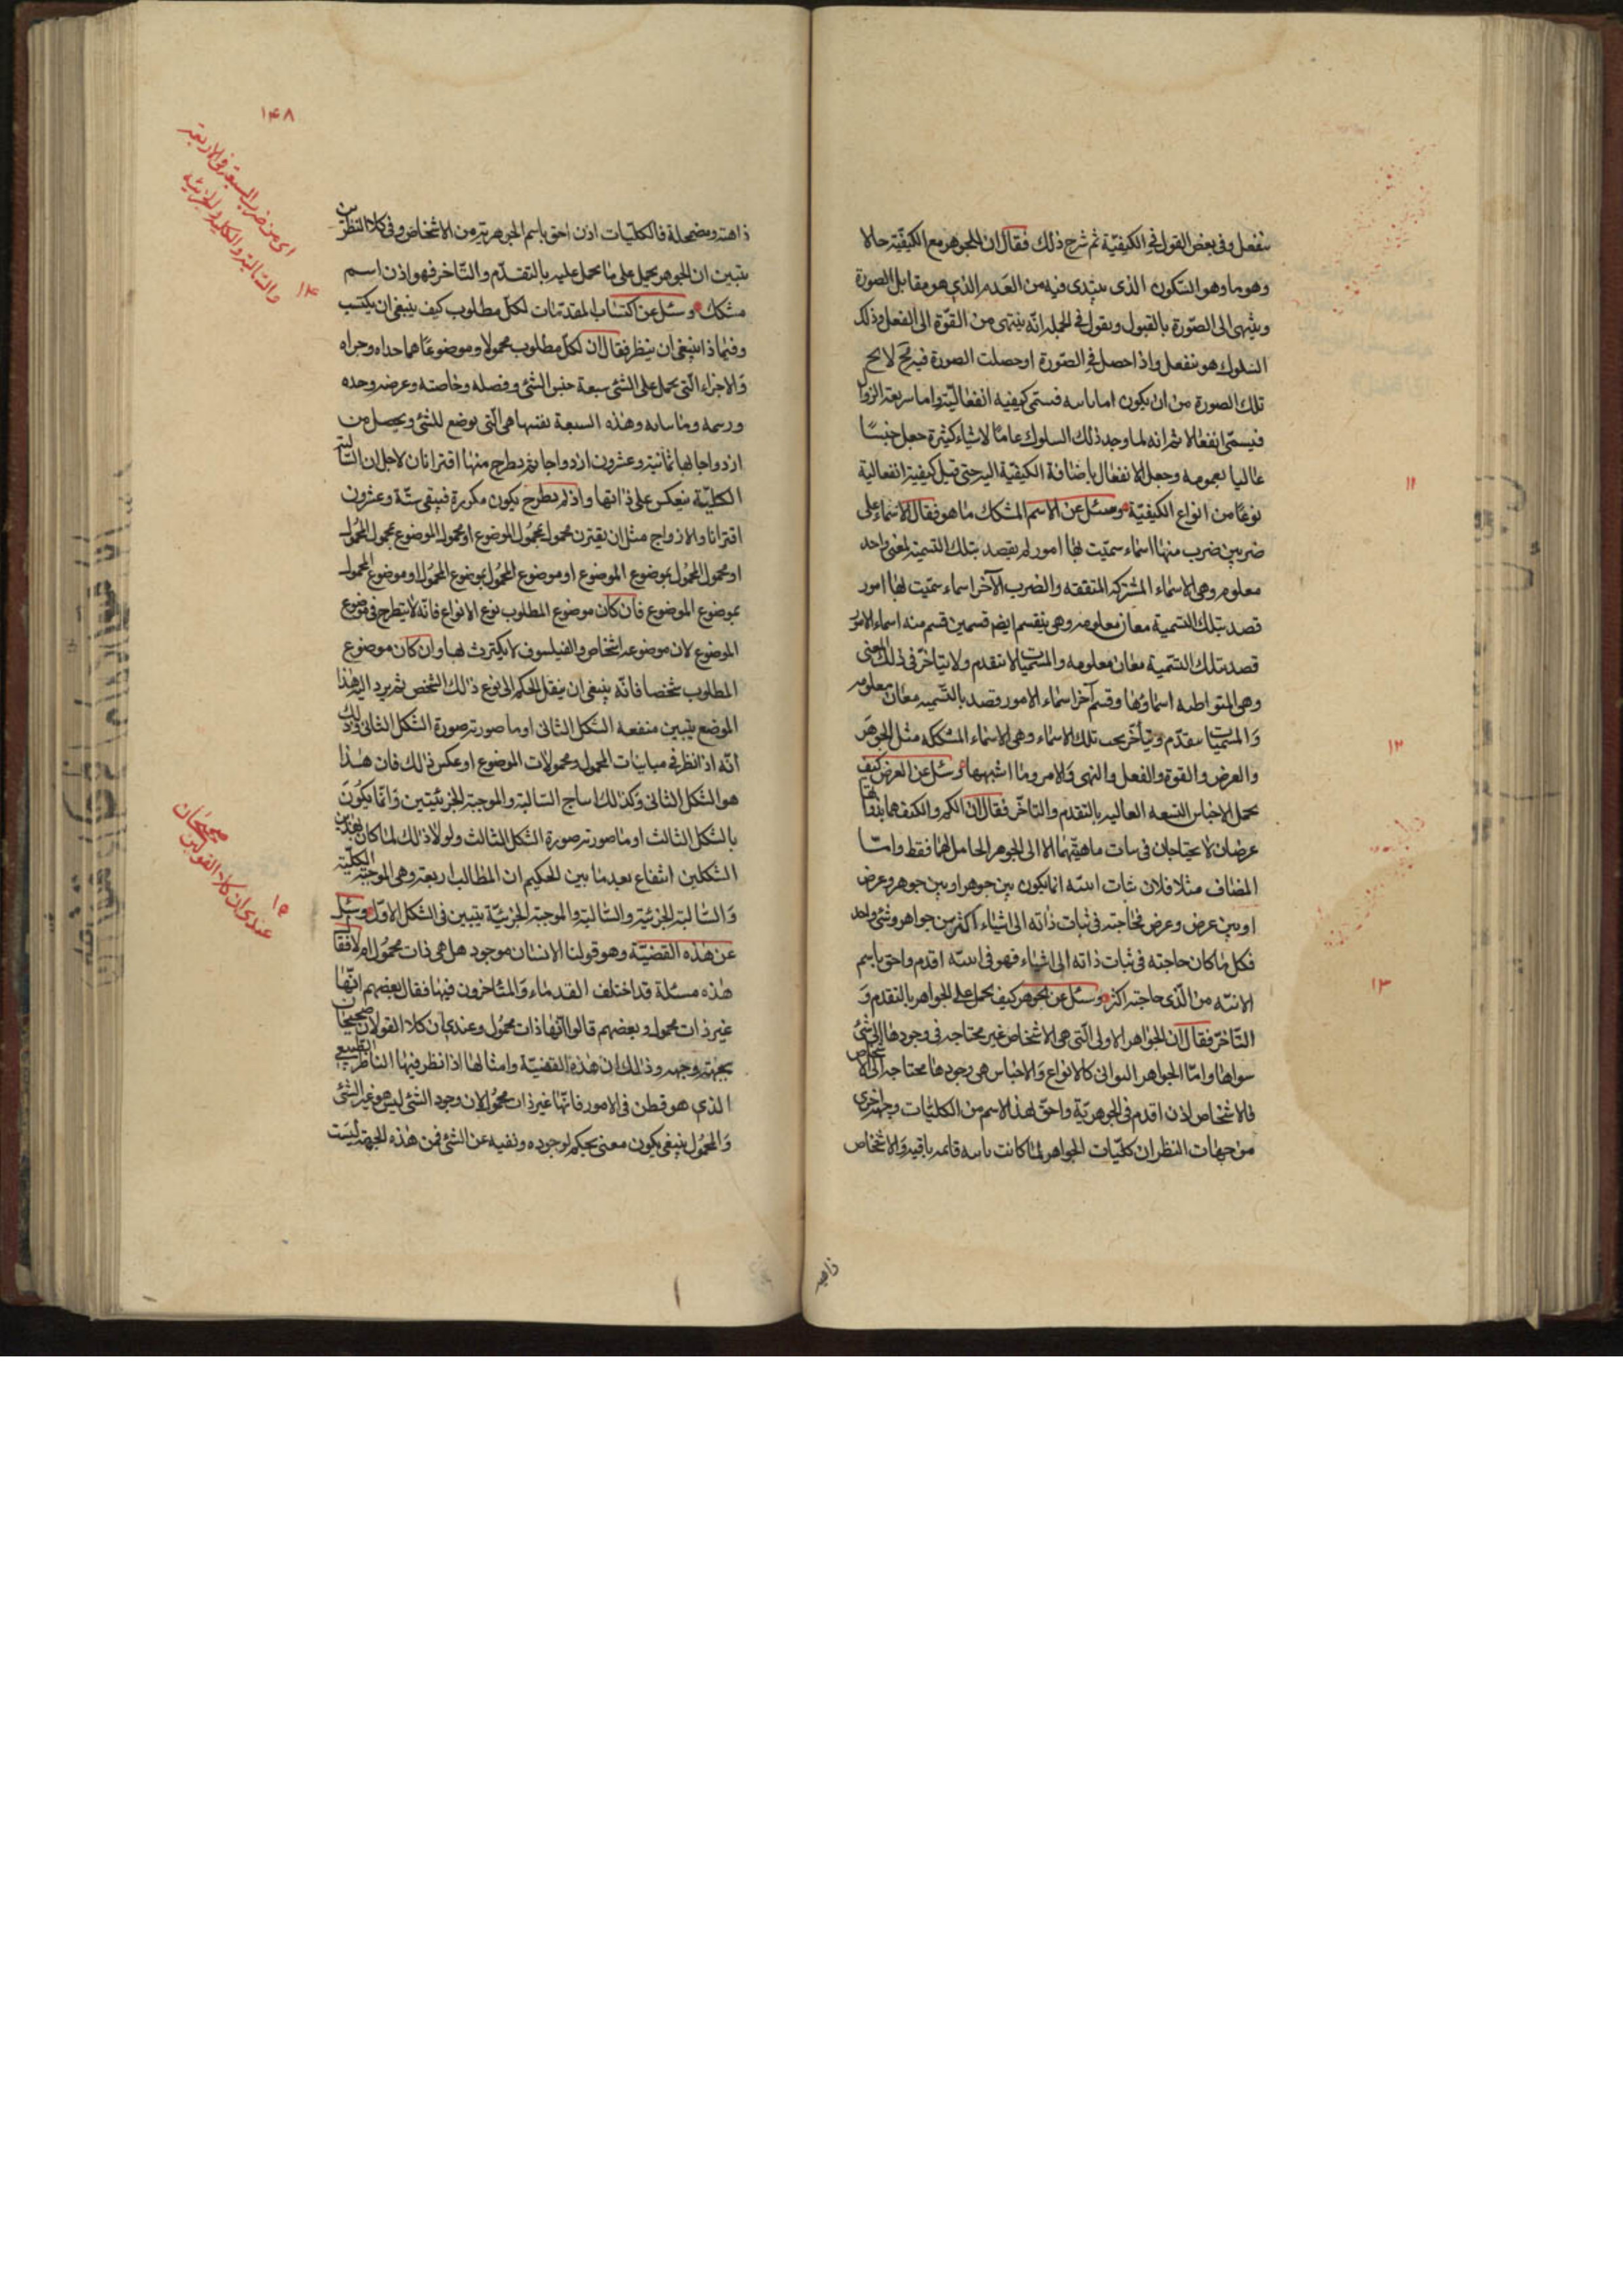 ينفعل وفي بعض القول في الكيفيّة ثم شرح ذلك فقال ان للجوهر مع الكيفيّة حالا
وهو ما وهو التكون الذى يبتدى فيه من العدم الذي هو مقابل الصورة
وينتهى الى الصّورة بالقبول ونقول في الجملة انّه ينتهى من القوّة الى الفعل وذلك
السلوك هو ينفعل واذا حصل في الصّورة او حصلت الصورة فيه لا يخ
تلك الصورة من ان يكون اما ثابتة فتسمّى كيفيه انفعاليّة واما سريعة الزوال
فيسمّى انفعالا ثم انه لما وجد ذلك السلوك عاما لاشياء كثيرة جعل جنسًا
عاليا بعمومه وجعل الانفعال باضافة الكيفيّة اليه حتى قيل كيفية انفعالية
نوعًا من انواع الكيفيّة وسئل عن الاسم المشكك ما هو فقال الاسماء على
ضربين ضرب منها اسماء سمّيت بها امور لم يقصد بتلك التسمية لمعنى واحد
معلوم وهى الاسماء المشتركة المتفقه والضرب الآخر اسماء سمّيت بها امور
قصد بتلك التسمية معان معلومه وهو ينقسم ايضم قسمين قسم منه اسماء لامور
قصد بتلك التسمية معان معلومه والمسميات لا تتقدم ولا يتاخر في ذلك المعنى
وهى المتواطيه اسماؤها وقسم آخر اسماء لامور قصد بالتسميه معان معلومه
والمسميات يتقدّم ويتأخّر بحسب تلك الاسماء وهى الاسماء المشككه مثل الجوهر
والعرض والقوة والفعل والنهى والامر وما اشبهها وسئل عن العرض كيف
يحمل الاجناس التسعه العاليه بالتقدم والتاخّر فقال ان الكم والكيف هما بذاتهما
عرضان لا يحتاجان في ثبات ماهيتهما الا الى الجوهر الحامل لهما فقط وامّا
المضاف مثلا فلان ثبات انيته انما يكون بين جوهر وجوهر او بين جوهر وعرض
او بين عرض وعرض فحاجته في ثبات ذاته الى اشياء اكثر من جوهر وشئ واحد
فكل ما كان حاجته في ثبات ذاته الى اشياء فهو في انيته اقدم واحق باسم
الانيه من الّذى حاجته اكثر وسئل عن الجوهر كيف يحمل على الجواهر بالتقدم و
التاخّر فقال ان الجواهر الاولى الّتى هى الاشخاص غير محتاجه في وجودها الى شئ
سواها وامّا الجواهر الثوانى كالانواع والاجناس هى وجودها محتاجه الى الاشخاص
فالاشخاص اذن اقدم في الجوهريّة واحقّ بهذا الاسم من الكليّات وجهة اخرى
من جهات النظر ان كليّات الجواهر لمّا كانت ثابته قائمه باقيه والاشخاص
ذاهبة
١١
١٢
١٣
١۴٨
ذاهبة ومضمحلة فالكليّات اذن احق باسم الجوهريّة من الاشخاص وفي كلا النظرين
يتبين ان الجوهر يحمل على ما يحمل عليه بالتقدّم والتّاخر فهو اذن اسم
مشكك وسئل عن اكتساب المقدّمات لكلّ مطلوب كيف ينبغى ان يكتسب
وفيما ذا ينبغى ان ينظر فقال ان لكلّ مطلوب محمولا وموضوعًا هما حداه وجزاه
والاجزاء الّتى يحمل على الشئ سبعة جنس الشئ وفصله وخاصته وعرضه وحده
ورسمه وما يباينه وهذه السبعة نفسها هى الّتى توضع للشئ ويحصل من
ازدواجاتها ثمانية وعشرون ازدواجا ثم يطرح منها اقترانان لاجل ان السّالبة
الكليّة ينعكس على ذاتها واذ لم يطرح يكون مكررة فيبقى ستّة وعشرون
اقترانا والازواج مثل ان يقترن محمول المحمول بمحمول الموضوع او محمول الموضوع بمحمول المحمول
او محمول المحمول بموضوع الموضوع او موضوع المحمول بموضوع المحمول او موضوع المحمول
بموضوع الموضوع فان كان موضوع المطلوب نوع الانواع فانّه لا ينظر في موضوع
الموضوع لان موضوعه اشخاص والفيلسوف لا يكترث لها وان كان موضوع
المطلوب شخصا فانّه ينبغى ان ينقل الحكم الى نوع ذلك الشخص ثم يرد اليه هذا
الموضع يتبين منفعه الشكل الثانى او ما صورته صورة الشكل الثانى وذلك
انّه اذا نظر في مباينات المحمول ومحمولات الموضوع او عكس ذلك فان هذا
هو الشكل الثانى وكذلك انتاج السالبة والموجبة الجزئيتين وانّما يكون
بالشكل الثالث او ما صورته صورة الشكل الثالث ولولا ذلك لما كان بهذين
الشكلين انتفاع بعد ما بين الحكيم ان المطالب اربعة وهى الموجبة الكليّة
والسّالبة الجزئية والسّالبة والموجبة الجزئيّة يتبين في الشكل الاوّل وسئل
عن هذه القضيّة وهو قولنا الانسان موجود هل هى ذات محمول ام لا فقا
هذه مسئلة قد اختلف القدماء والمتاخرون فيها فقال بعضهم انّها
غير ذات محمول وبعضهم قالوا انّها ذات محمول وعندى ان كلا القولان صحيحان
بجهة وجهه وذلك ان هذه القضيّة وامثالها اذا نظر فيها الناظر الطبيعى
الذي هو فطن في الامور فانّها غير ذات محمول لان وجود الشئ ليس هو غير الشئ
والمحمول ينبغى يكون معنى يحكم لوجوده ونفيه عن الشئ فمن هذه الجهة ليست
اى من ضرب السبعة في الاربعة
والسالبة الكلية والجزئية
١۴
صحيحان
عندى ان كلا القولين
١٥